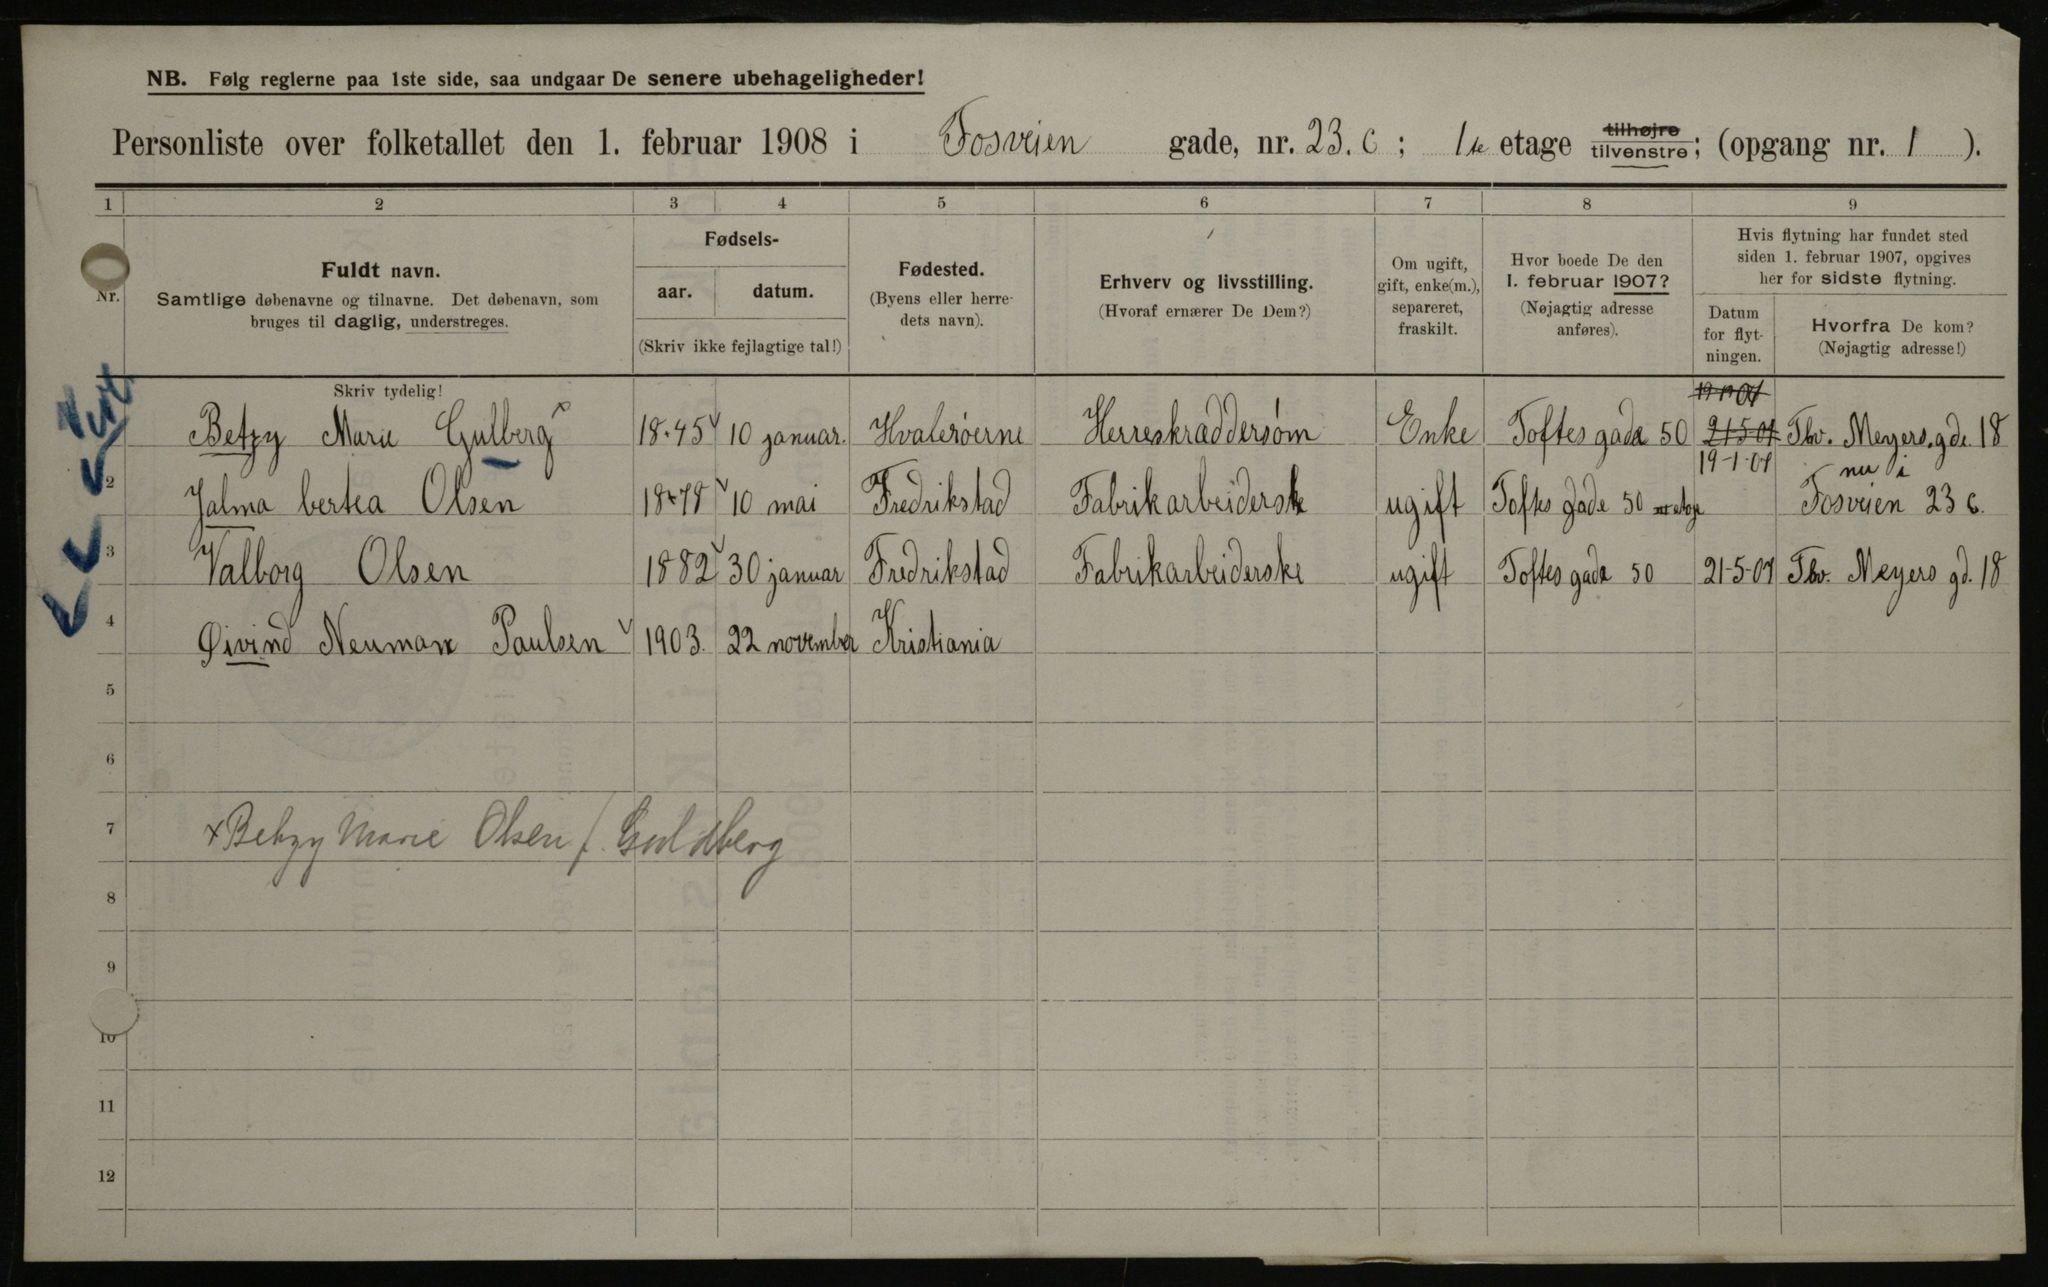 NB. Følg reglerne paa 1ste side, saa undgaar De senere ubehageligheder!
Personliste over folketallet den 1. februar 1908 i Fosveien gade, nr. 23. c; 1ste etage tilhøjre tilvenstre; (opgang nr. 1).
1 2 3 4 5 6 7 8 9
Nr.
Fuldt navn.
Samtlige døbenavne og tilnavne. Det døbenavn, som
bruges til daglig, understreges.
Fødsels-
aar. datum.
(Skriv ikke fejlagtige tal!)
Fødested.
(Byens eller herre-
dets navn).
Erhverv og livsstilling.
(Hvoraf ernærer De Dem?)
Om ugift,
gift, enke(m.),
separeret,
fraskilt.
Hvor boede De den
1. februar 1907?
(Nøjagtig adresse
anføres).
Hvis flytning har fundet sted
siden 1. februar 1907, opgives
her for sidste flytning.
Datum
for flyt-
ningen.
Hvorfra De kom?
(Nøjagtig adresse!)
Skriv tydelig!
Betzy Marie Gulberg x 1845 10 januar. Hvalerøerne Herreskræddersøm Enke Toftes gade 50 21-5-07 Thv. Meyers. gde. 18
19-1-07 nu i
2 Jalma bertea Olsen 1878 10 mai Fredrikstad Fabrikarbeiderske ugift Toftes gade 50 etage Fosveien 23 c.
3 Valborg Olsen 1882 30 januar Fredrikstad Fabrikarbeiderske ugift Toftes gade 50 21-5-07 Thv. Meyers gd. 18
4 Øivind Neuman Paulsen 1903. 22 november Kristiania
5
6
7 x Betzy Marie Olsen f. Guldberg
8
9
10
11
12